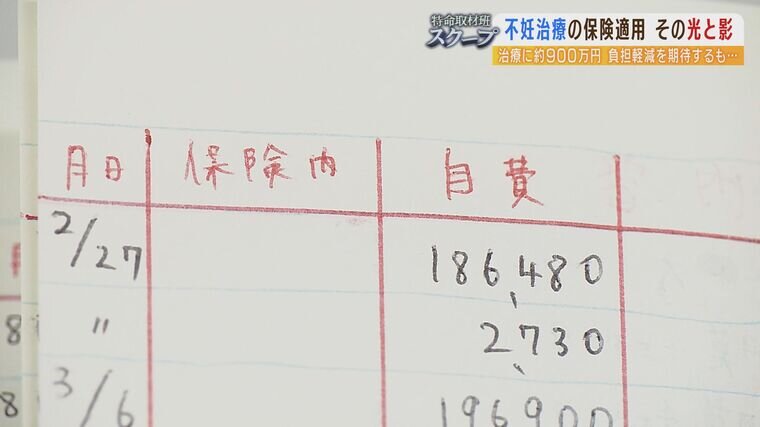 特命取材班
スクープ
不妊治療の保険適用 その光と影
治療に約900万円 負担軽減を期待するも…
月日 保険内 自費
2/27 186,480
〃 2,730
3/6 196900